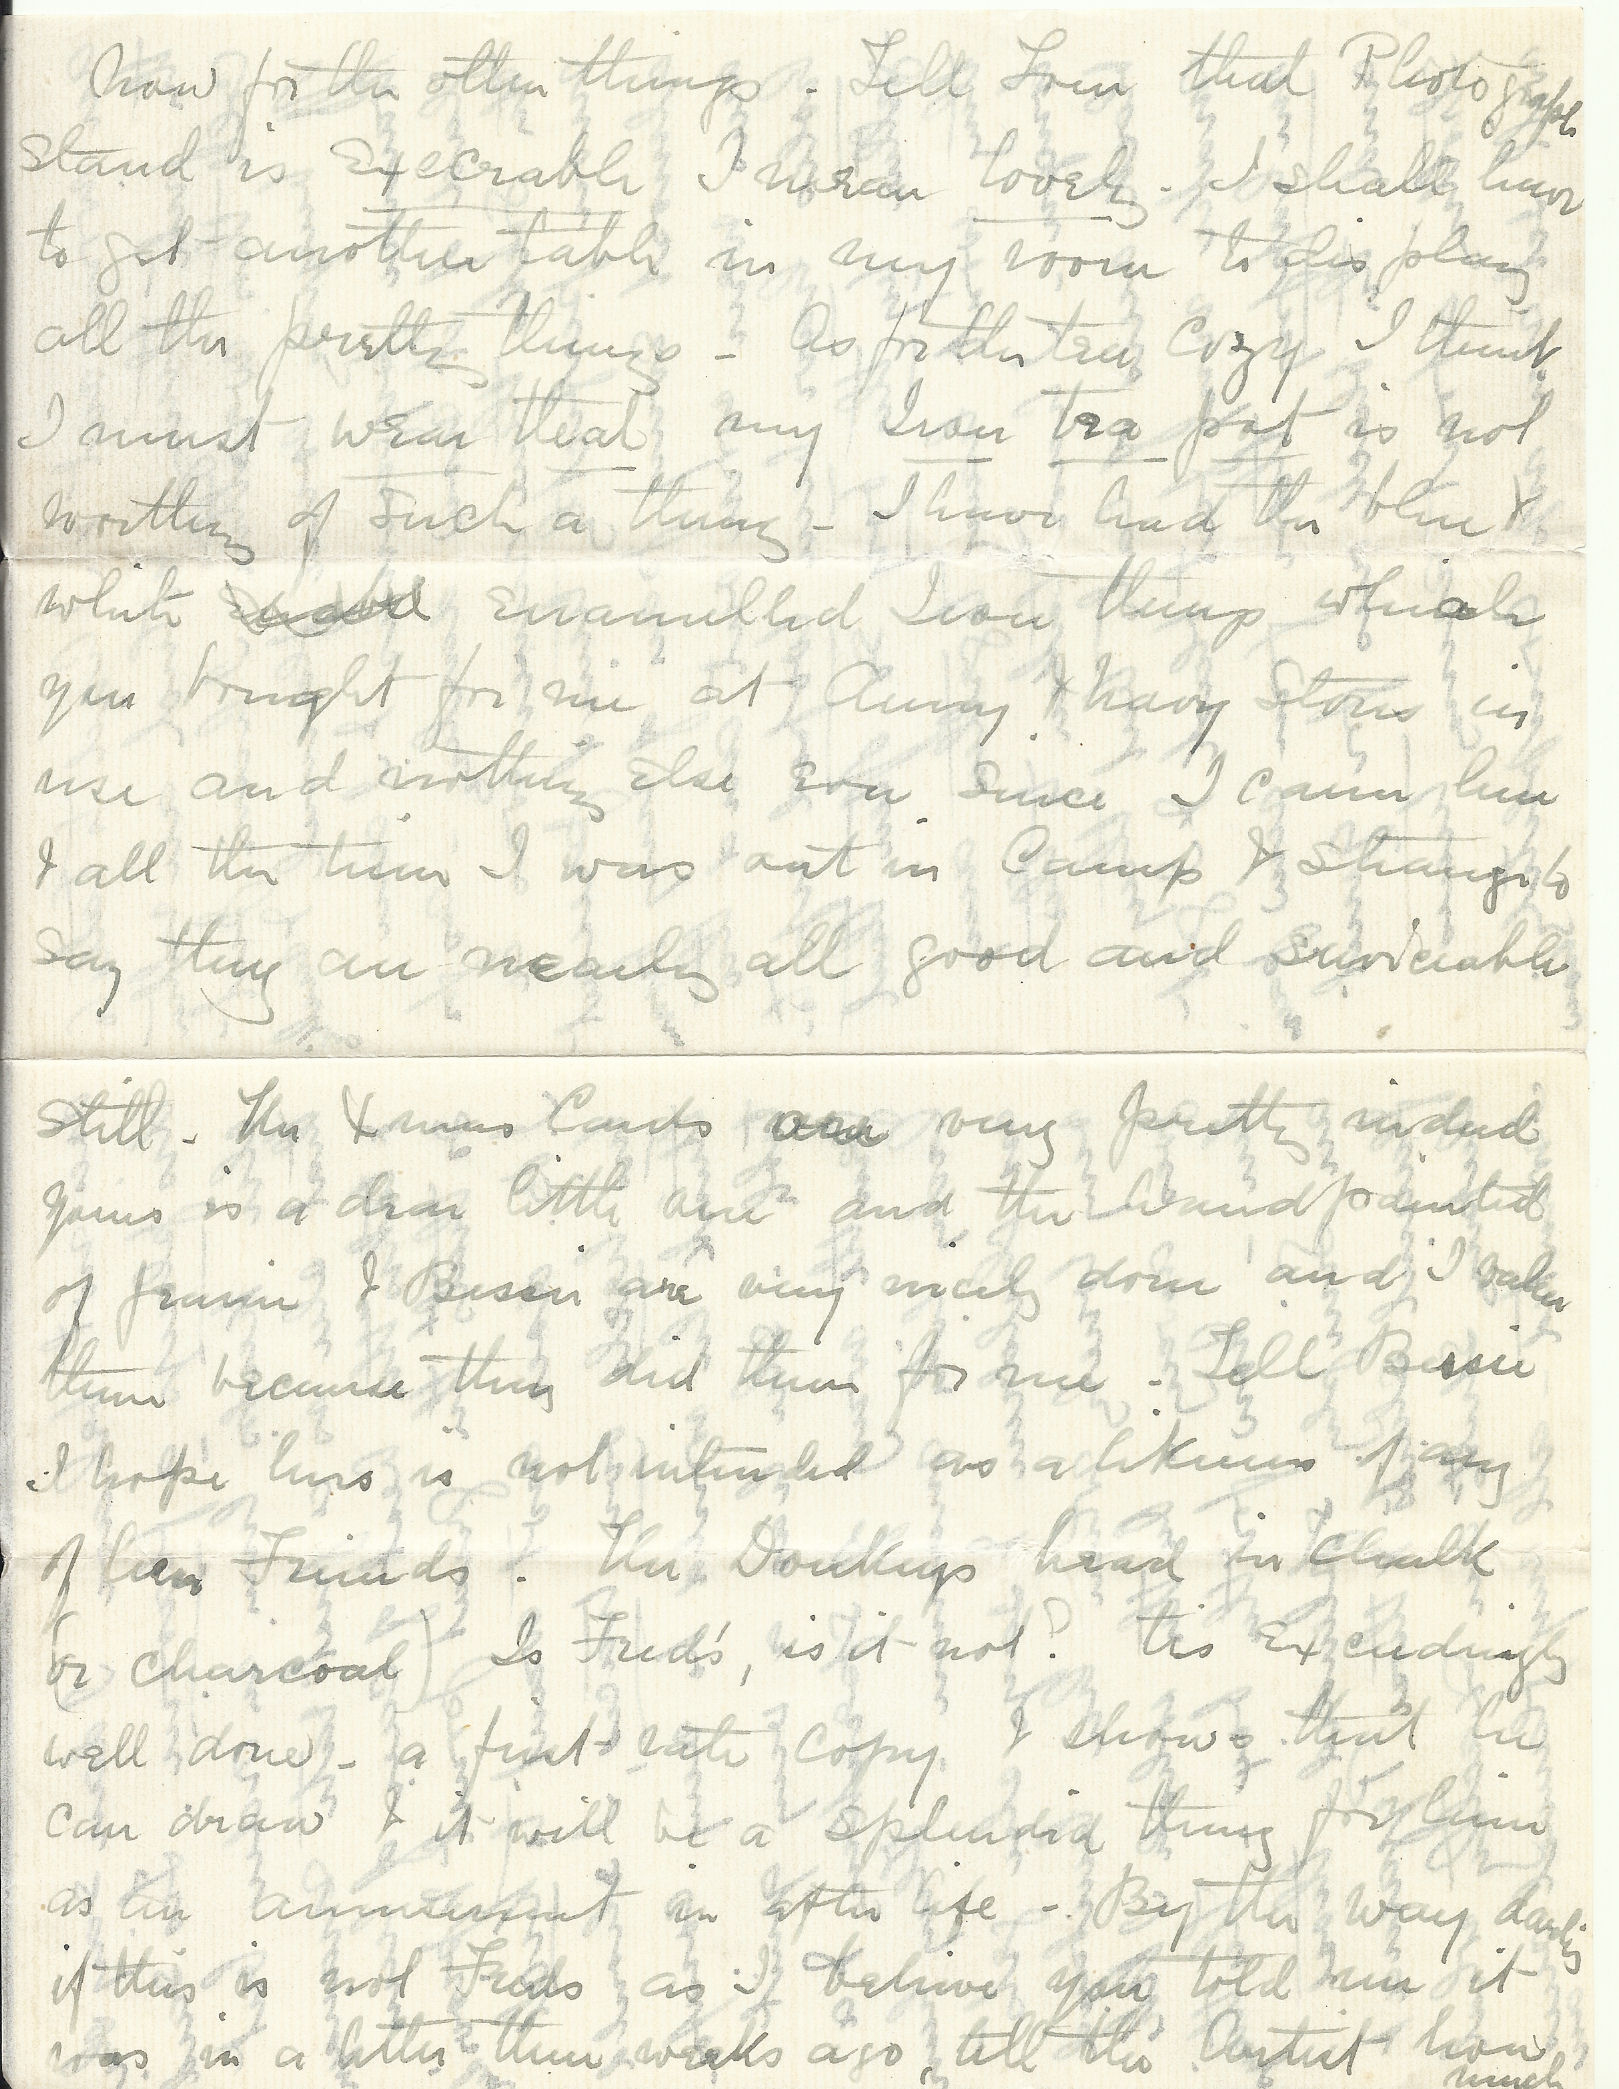 Now for the other things - Tell that Photograph
stand is Execrable I mean lovely - I shall have
to get another table in my room to display
all the pretty things - As for the tea Cozy I think
I must wear that my Iron tea pot is not
worthy of such a thing - I have had the blue &
white enamelled Iron things which
you bought for me at Army & Navy Stores in
use and nothing else ever since I came here
& all the time I was out in Camp & strange to
say they are nearly all good and serviceable
still - The Xmas Cards are very pretty indeed
yours is a dear little one and the handpainted
of & Bessie are very nicely done and I value
them because they did them for me - Tell Bessie
I hope hers is not intended as a likeness of any
of her Friends. The Donkeys head in Chalk
(or charcoal) Is Fred's, is it not? tis Exceedingly
well done - a first rate copy & shows that he
can draw & it will be a splendid thing for him
as an amusement in after life - By the way darling
if this is not Freds as I believe you told me it
was in a letter three weeks ago, tell the Artist how
much